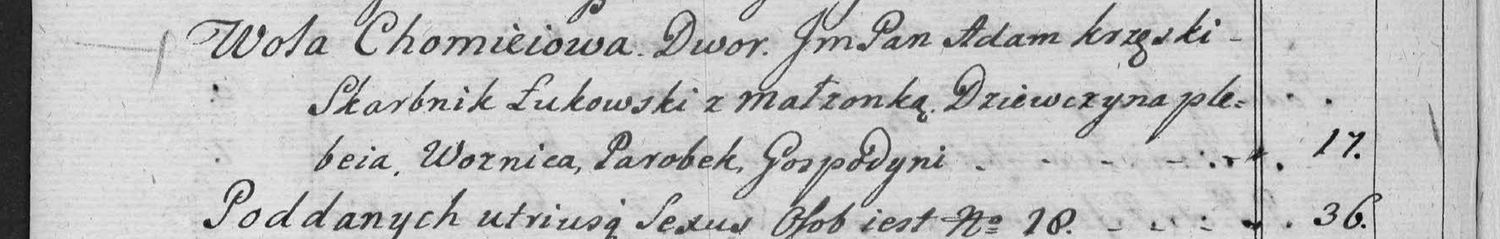 Wola Chomieiowa. Dwor. Jm Pan Adam krzęski -
Skarbnik Łukowski z małzonką. Dziewczyna ple=
beia, Woznica, Parobek, Gospodyni - - - - - 17.
Poddanych utriusq Sexus Osob iest No 18. - - - - 36.